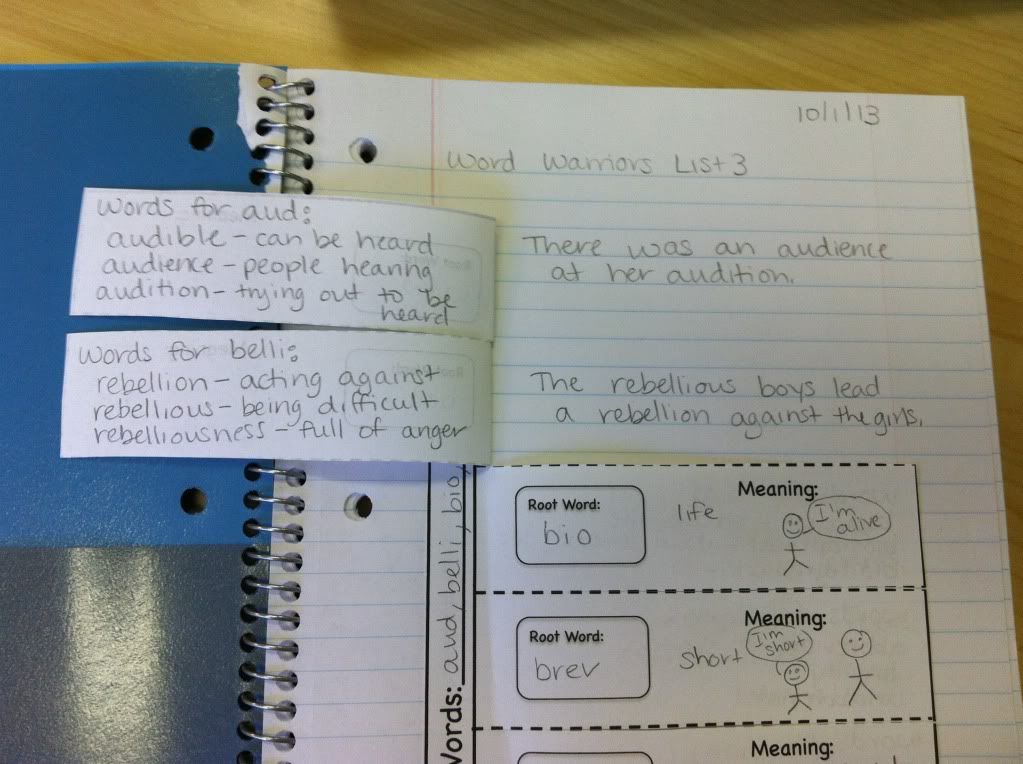 10/1/13
Word Warriors List 3
Words for aud:
audible - can be heard
audience - people hearing
audition - trying out to be
heard
There was an audience
at her audition.
Words for belli:
rebellion - acting against
rebellious - being difficult
rebelliousness - full of anger
The rebellious boys lead
a rebellion against the girls.
Words: aud, belli, bio,
Root Word:
bio
Meaning:
life
I'm
alive
Root Word:
brev
Meaning:
short
I'm
short
Meaning: